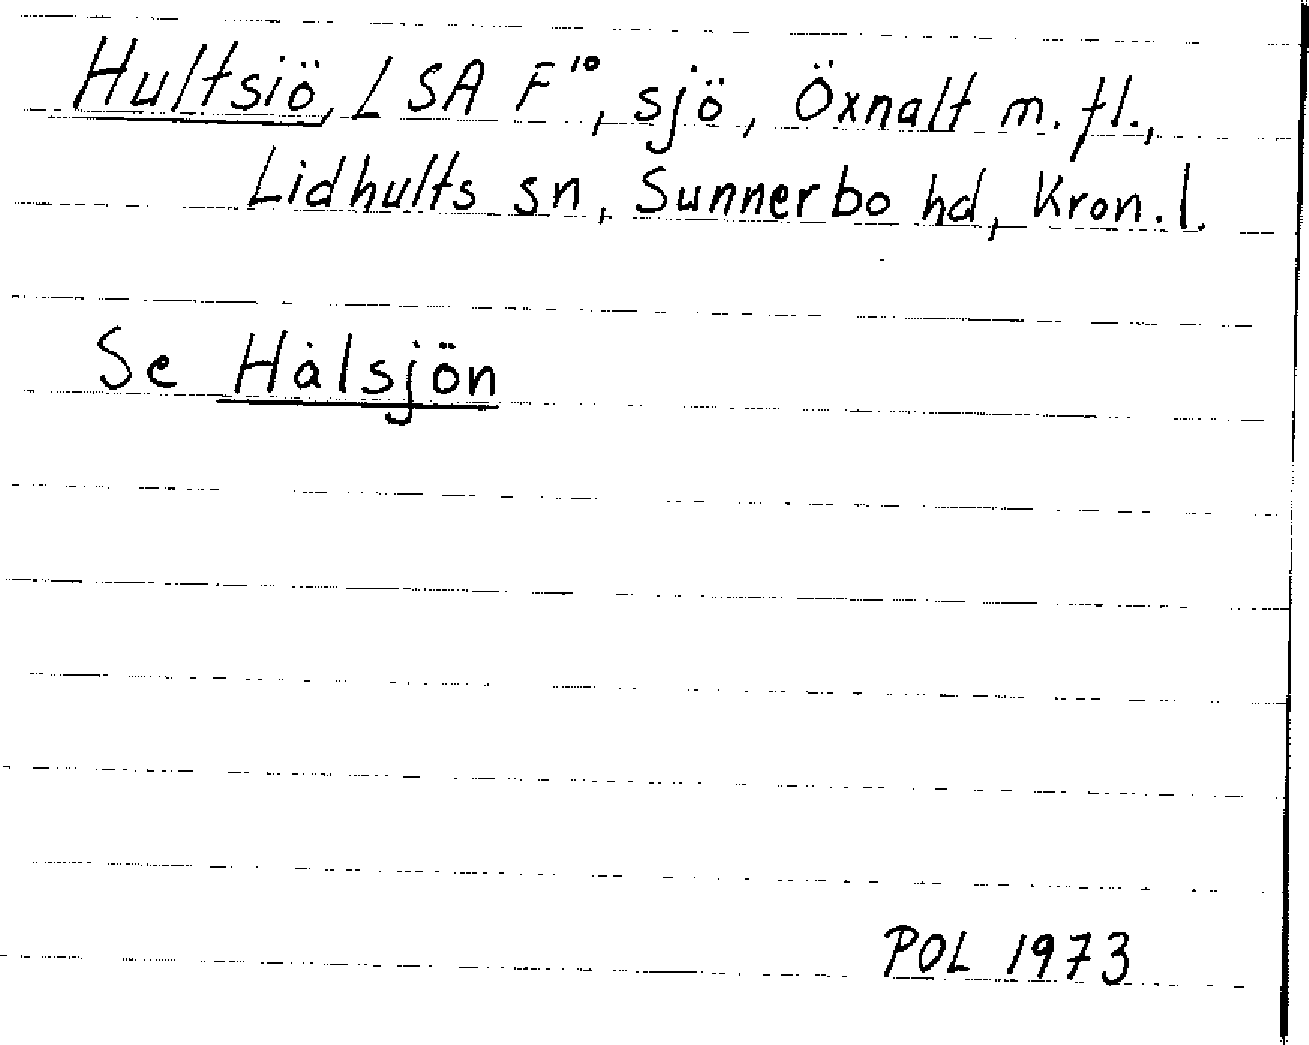 Hultsiö, LSA F¹⁰, sjö, Öxnalt m. fl.,
Lidhults sn, Sunnerbo hd, Kron. l.
Se Hålsjön
POL 1973